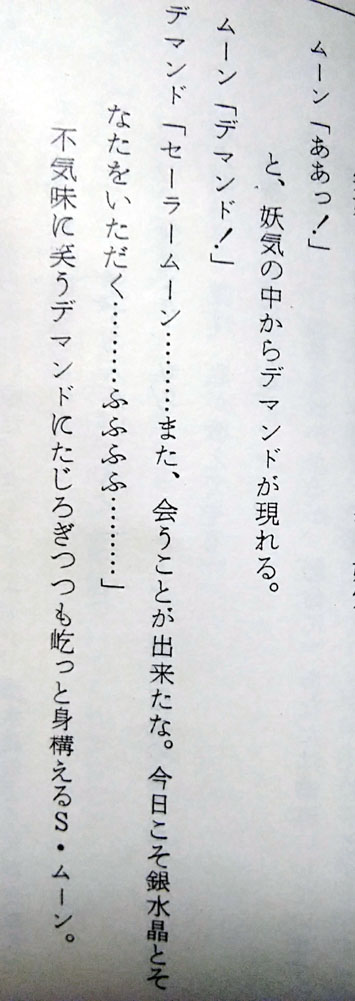 ムーン「ああっ!」
と、妖気の中からデマンドが現れる。
ムーン「デマンド!」
デマンド「セーラームーン…………また、会うことが出来たな。今日こそ銀水晶とそ
なたをいただく…………ふふふふ…………」
不気味に笑うデマンドにたじろぎつつも屹っと身構えるS・ムーン。